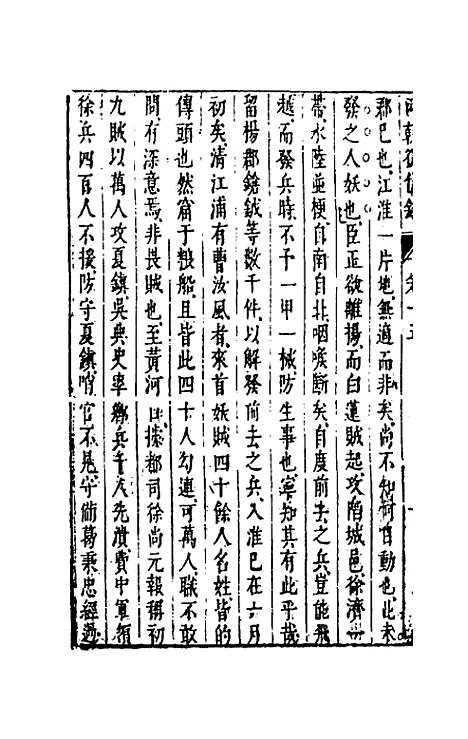 兩朝從信錄 卷十五
郡巳也江淮一片地無適而非矣尚不知何日動也此未
發之人妖也臣正欲離揚而白蓮賊起攻陷城邑徐濟一
帶水陸並梗自南自北咽喉斷矣自度前去之兵豈能飛
越而發兵時不予一甲一械防生事也寧知其有此乎哉
留楊郡鎗鉞等數千件以解發前去之兵入淮巳在六月
初矣清江浦有曹汝風者來首妖賊四十餘人名姓皆的
傳頭也然窩于粮船且皆此四十人勾連可萬人眹不敢
問有深意焉非畏賊也至黃河口據郡司徐尚元報稱初
九賊以萬人攻夏鎮吳典史率鄉兵千人先潰費中軍領
徐兵四百人不援防守夏鎮哨官不見守備葛秉忠經過